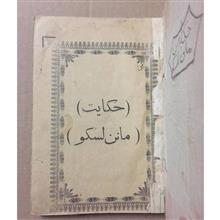 (حکایت)
(مانن لسکو)